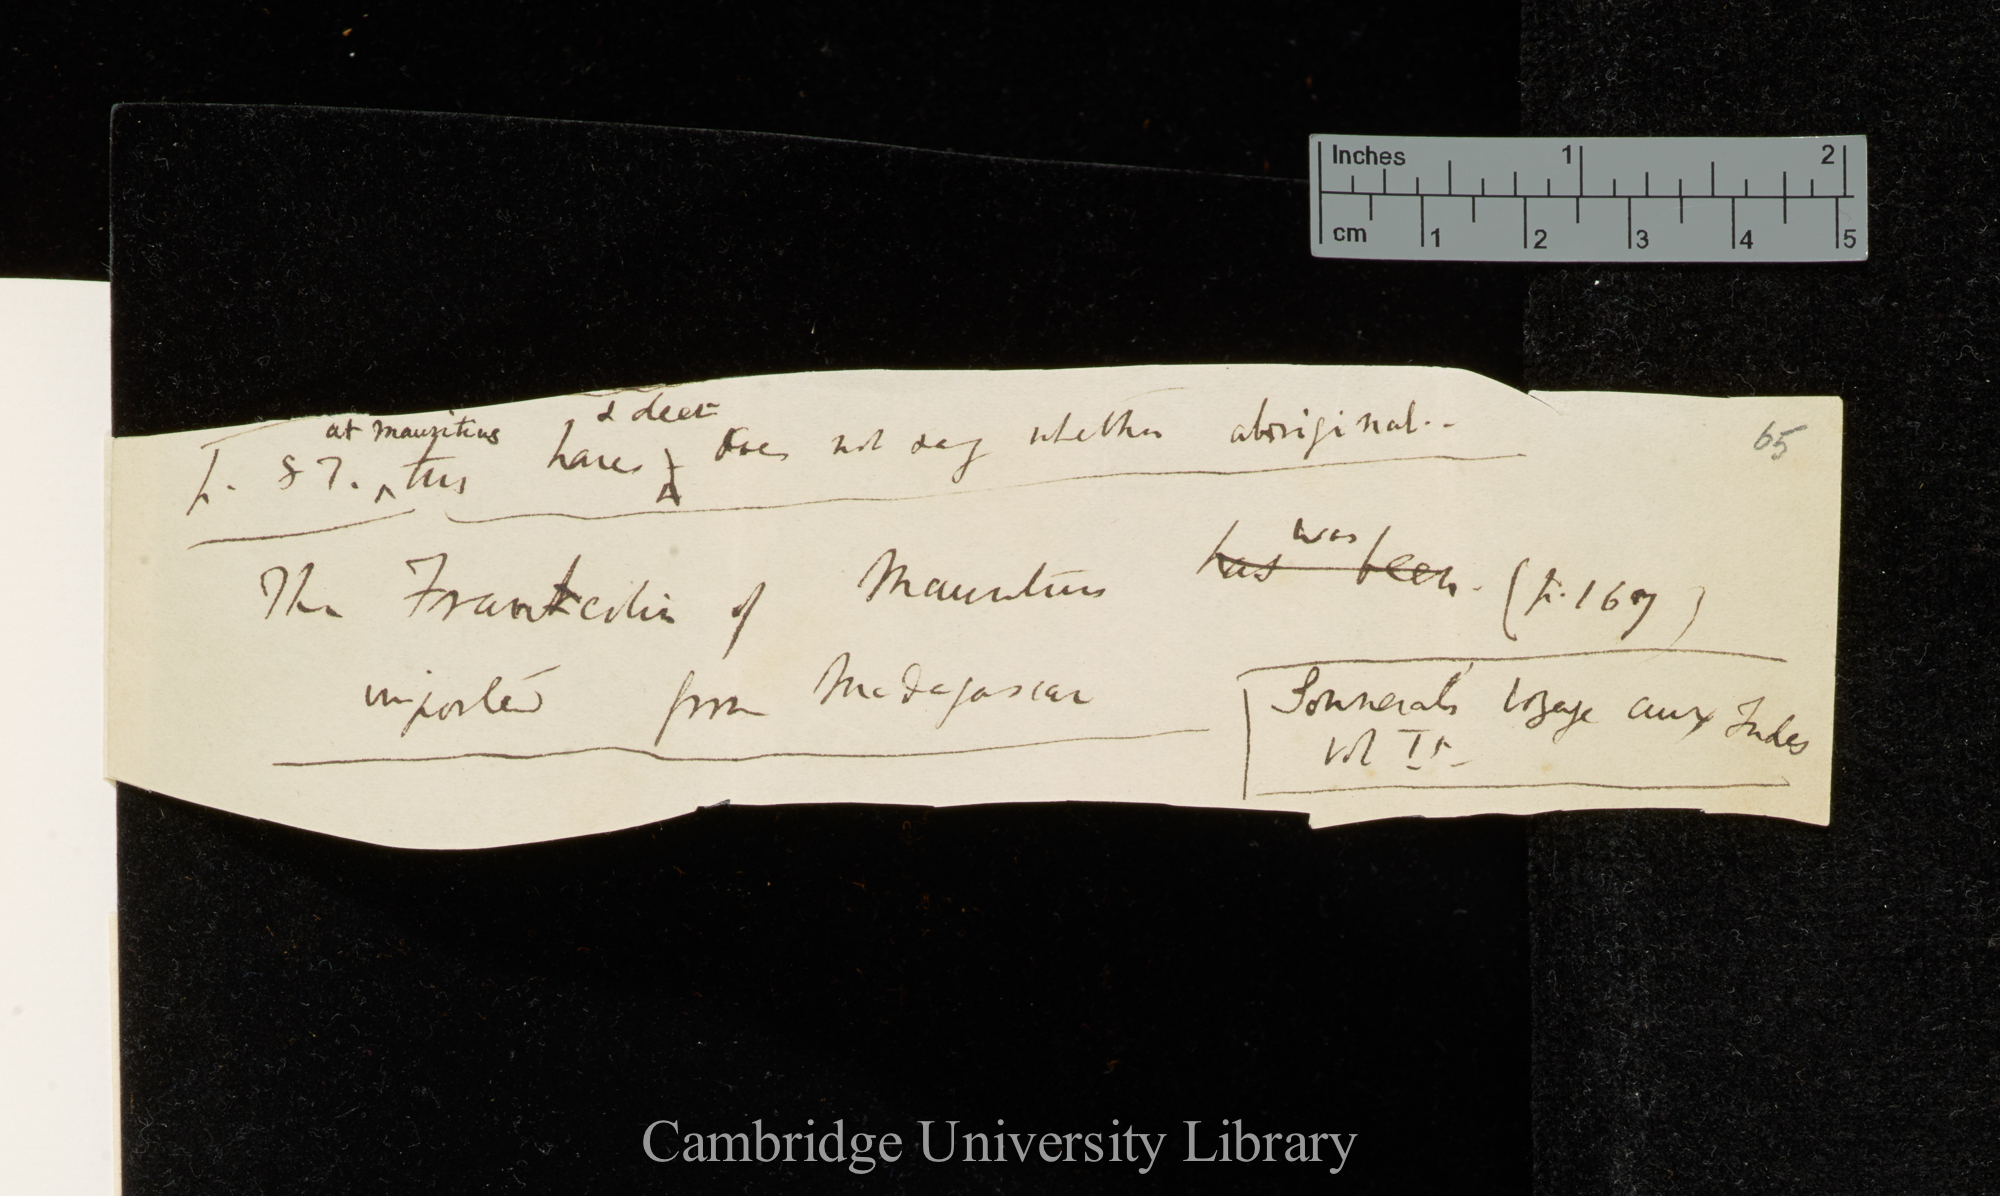 Inches 1 2
cm 1 2 3 4 5
at Mauritius & deer
p. 87. ^ this hares ^ does not say whether aboriginal..
65
was
The Frankcolin of Mauritius has been. (p. 167)
imported from Madagascar
Sonnerat's Voyage aux Indes
vol II.
Cambridge University Library